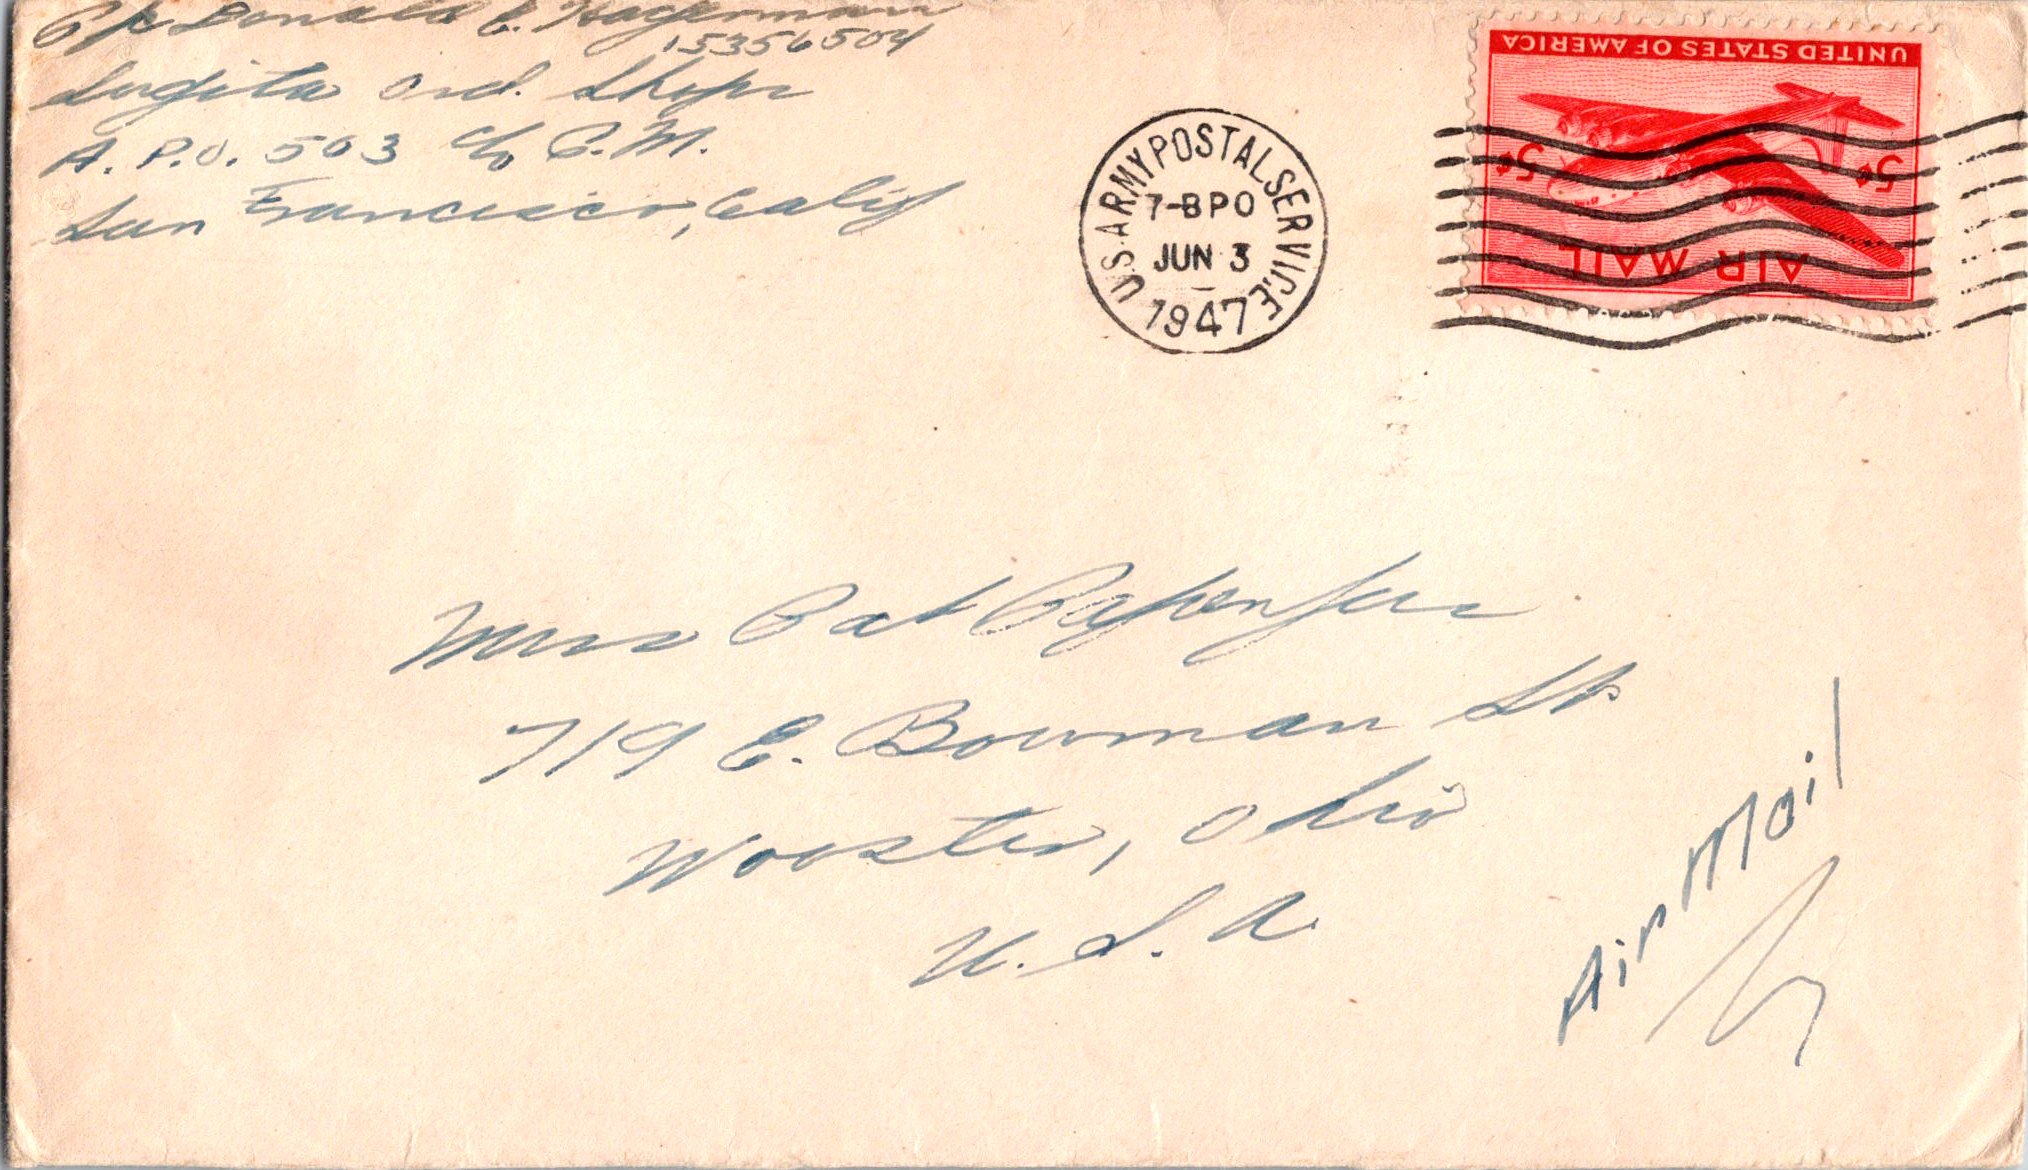 Pfc Donald E. Hagerman
15356504
Sugita Ord. Shops
A. P.O. 503 c/o P.M.
San Francisco, Calif
U.S. ARMY POSTAL SERVICE
7-8PO
JUN 3
1947
UNITED STATES OF AMERICA
5¢ 5¢
AIR MAIL
Miss Pat
719 E. Bowman St.
Wooster, Ohio
U.S.A.
Air Mail